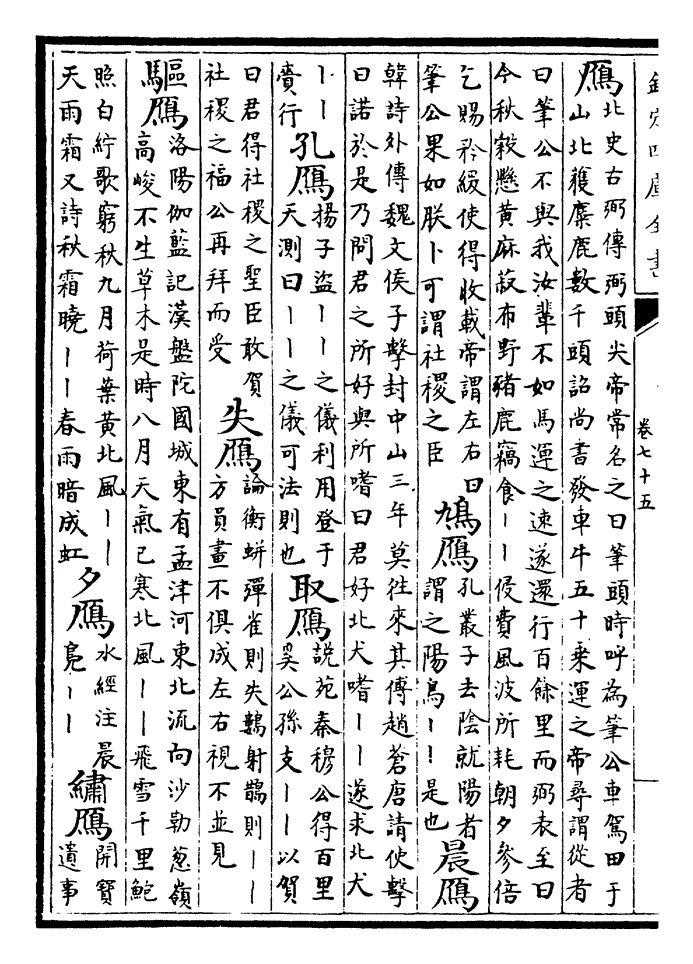 欽定四庫全書
卷七十五
鴈北史古弼傳弼頭尖帝常名之曰筆頭時呼為筆公車駕田于
山北獲麋鹿數千頭詔尚書發車牛五十乗運之帝尋謂從者
曰筆公不與我汝輩不如馬運之速遂還行百餘里而弼表至曰
今秋榖懸黄麻菽布野豬鹿竊食丨丨侵費風波所耗朝夕參倍
乞賜矜緩使得收載帝謂左右曰
筆公果如朕卜可謂社稷之臣
鳩鴈孔叢子去陰就陽者
謂之陽鳥丨丨是也
晨鴈
韓詩外傳魏文侯子擊封中山三年莫徃來其傳趙蒼唐請使擊
曰諾於是乃問君之所好與所嗜曰君好北犬嗜丨丨遂求北犬
丨丨
賫行
孔鴈揚子盜丨丨之儀利用登于
天測曰丨丨之儀可法則也
取鴈說苑秦穆公得百里
奚公孫支丨丨以賀
曰君得社稷之聖臣敢賀
社稷之福公再拜而受
失鴈論衡蛢彈雀則失鷜射鵲則丨丨
方員畫不俱成左右視不並見
驅鴈洛陽伽藍記漢盤陀國城東有孟津河東北流向沙勒葱嶺
高峻不生草木是時八月天氣已寒北風丨丨飛雪千里鮑
照白紵歌窮秋九月荷葉黄北風丨丨
天雨霜又詩秋霜曉丨丨春雨暗成虹
夕鴈水經注晨
鳬丨丨
繡鴈開寶
遺事